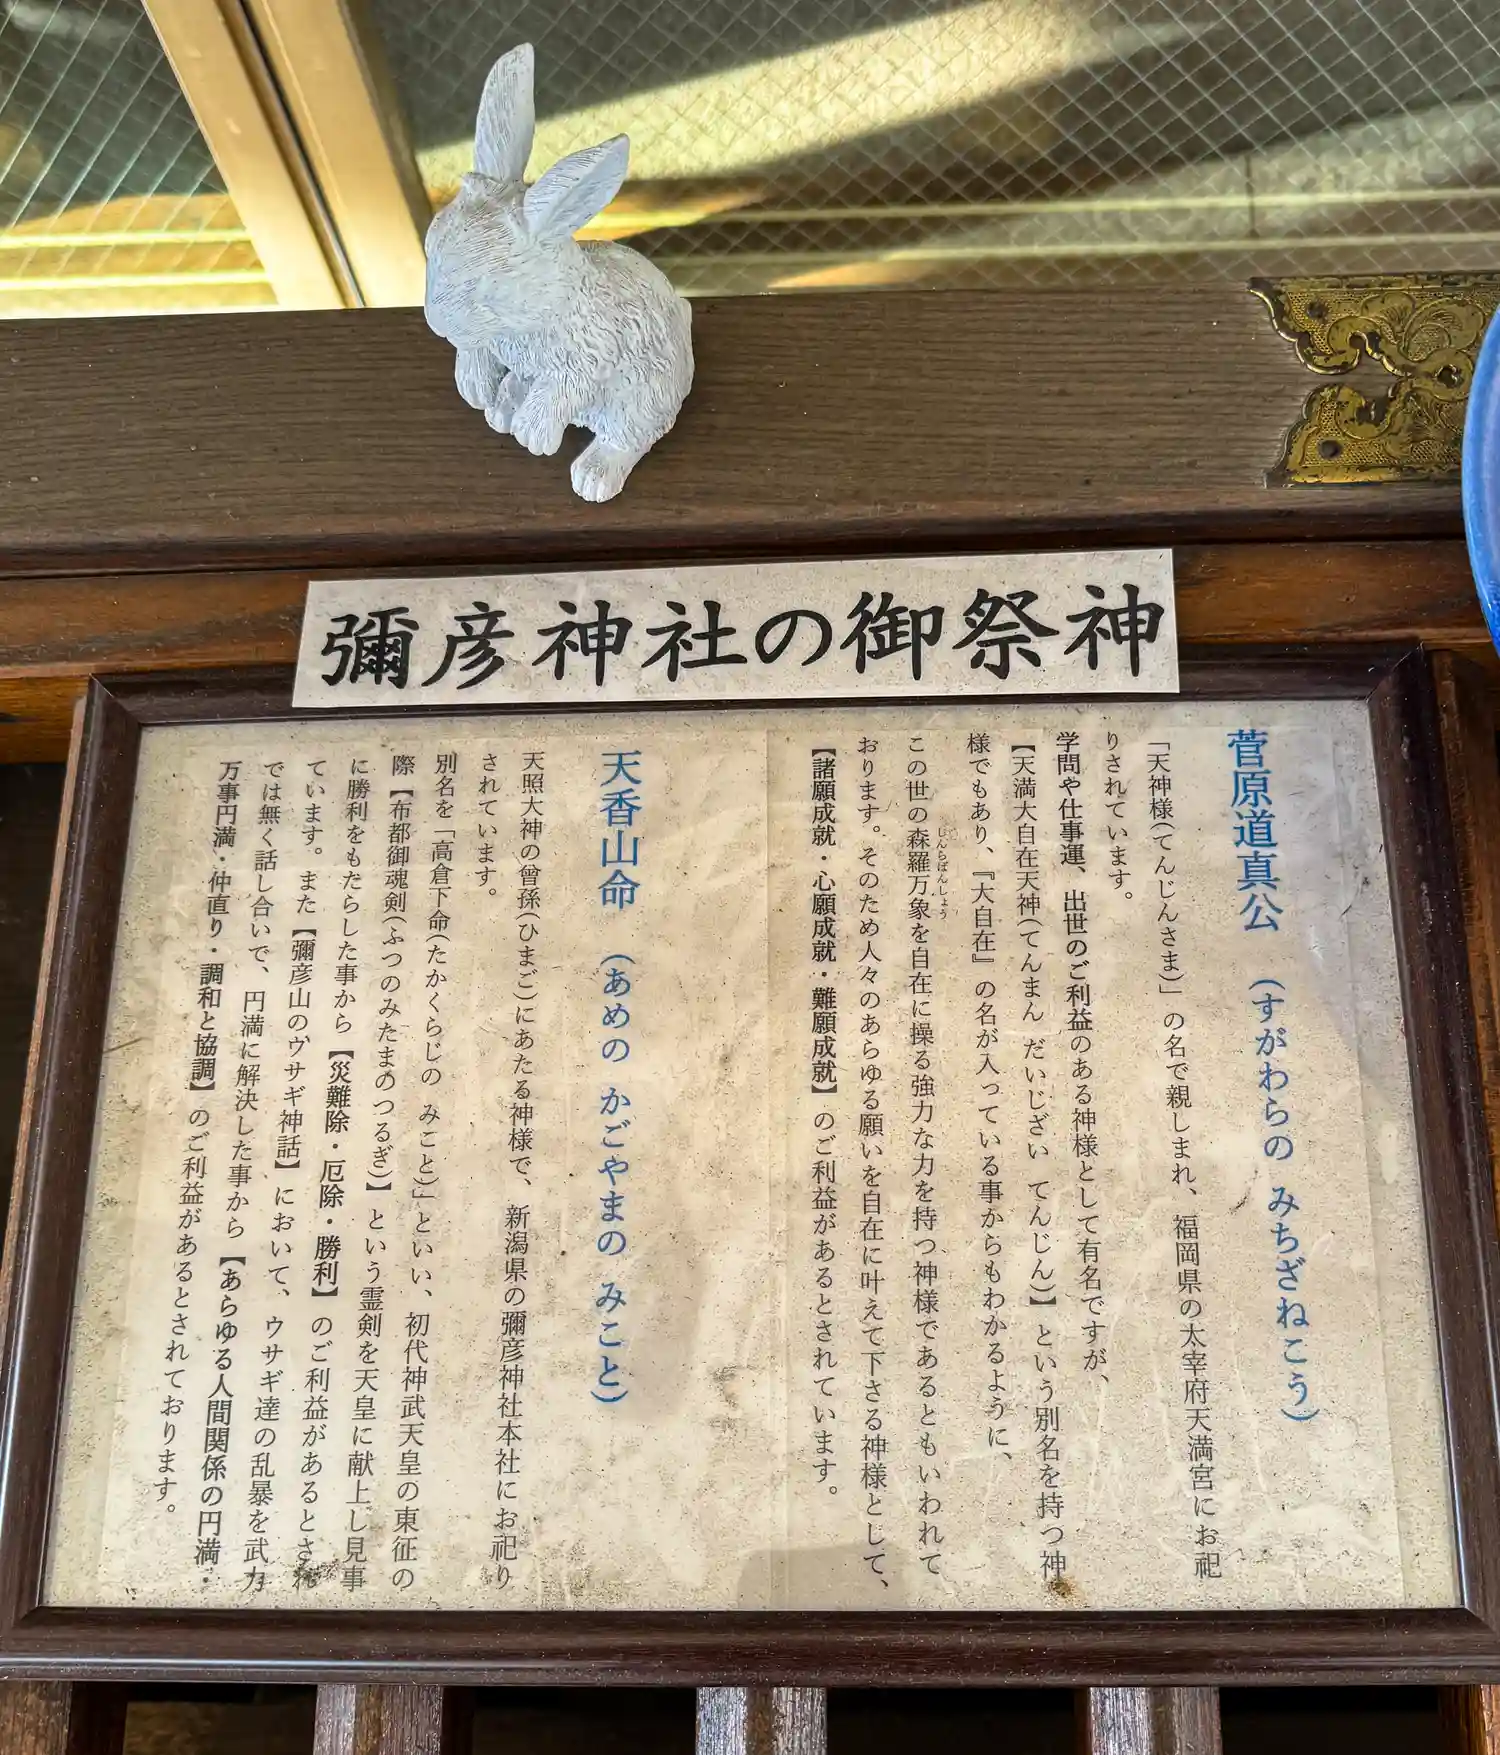 彌彦神社の御祭神
菅原道真公 (すがわらの みちざねこう)
「天神様(てんじんさま)」の名で親しまれ、福岡県の太宰府天満宮にお祀
りされています。
学問や仕事運、出世のご利益のある神様として有名ですが、
【天満大自在天神(てんまん だいじざい てんじん)】という別名を持つ神
様でもあり、『大自在』の名が入っている事からもわかるように、
しんらばんしょう
この世の森羅万象を自在に操る強力な力を持つ神様であるともいわれて
おります。そのため人々のあらゆる願いを自在に叶えて下さる神様として、
【諸願成就・心願成就・難願成就】のご利益があるとされています。
天香山命 (あめの かごやまの みこと)
天照大神の曾孫(ひまご)にあたる神様で、新潟県の彌彦神社本社にお祀り
されています。
別名を「高倉下命(たかくらじの みこと)」といい、初代神武天皇の東征の
際【布都御魂剣(ふつのみたまのつるぎ)】という霊剣を天皇に献上し見事
に勝利をもたらした事から【災難除・厄除・勝利】のご利益があるとされ
ています。また【彌彦山のウサギ神話】において、ウサギ達の乱暴を武力
では無く話し合いで、円満に解決した事から【あらゆる人間関係の円満・
万事円満・仲直り・調和と協調】のご利益があるとされております。